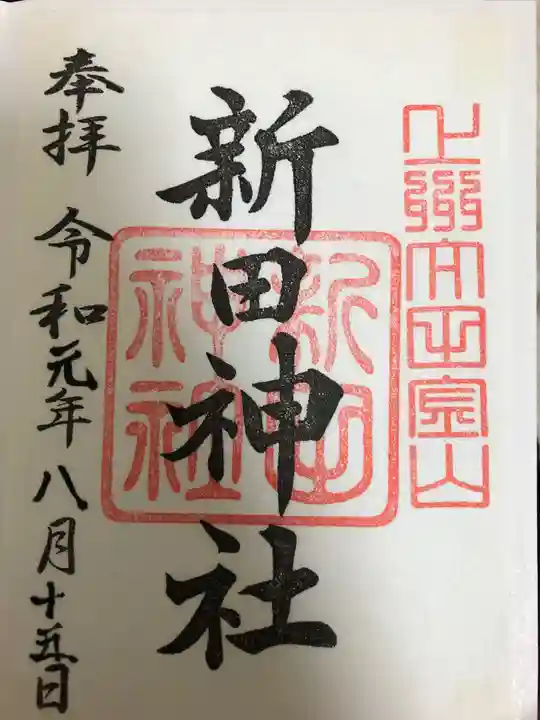 上州太田金山
新田神社
新田神社
奉拝
令和元年八月十五日